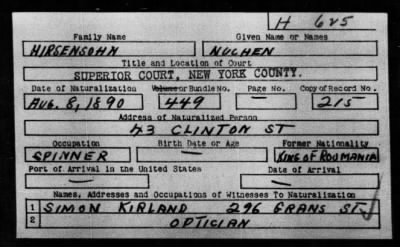 H 625
Family Name Given Name or Names
HIRSENSOHN NUCHEN
Title and Location of Court
SUPERIOR COURT, NEW YORK COUNTY.
Date of Naturalization Volume or Bundle No. Page No. Copy of Record No.
AUG. 8, 1890 449 — 215
Address of Naturalized Person
43 CLINTON ST
Occupation Birth Date or Age Former Nationality
SPINNER — KING OF ROUMANIA
Port of Arrival in the United States Date of Arrival
— —
Names, Addresses and Occupations of Witnesses To Naturalization
1 SIMON KIRLAND 296 GRANS ST.
2 OPTICIAN